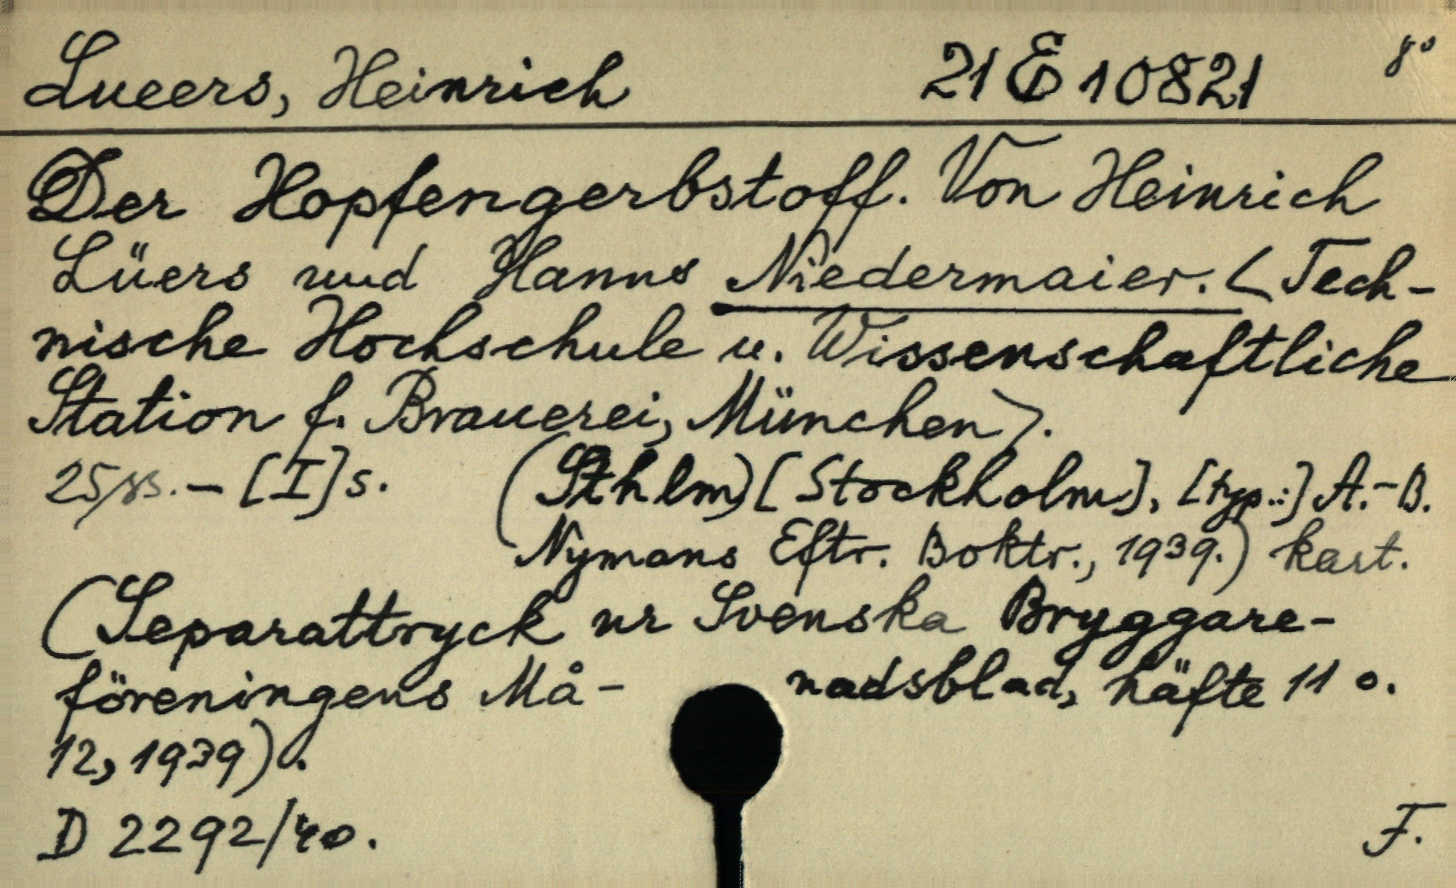 Lueers, Heinrich 21 E 10821 8°
Der Hopfengerbstoff. Von Heinrich
Lüers und Hanns Niedermaier. < Tech-
nische Hochschule u. Wissenschaftliche
Station f. Brauerei, München >.
25 - [I] s. (Sthlm) [Stockholm], [typ.:] A.-B.
Nymans Eftr. Boktr., 1939.) kart.
(Separattryck ur Svenska Bryggare-
föreningens Må- nadsblad, häfte 11 o.
12, 1939).
D 2292/40.
F.